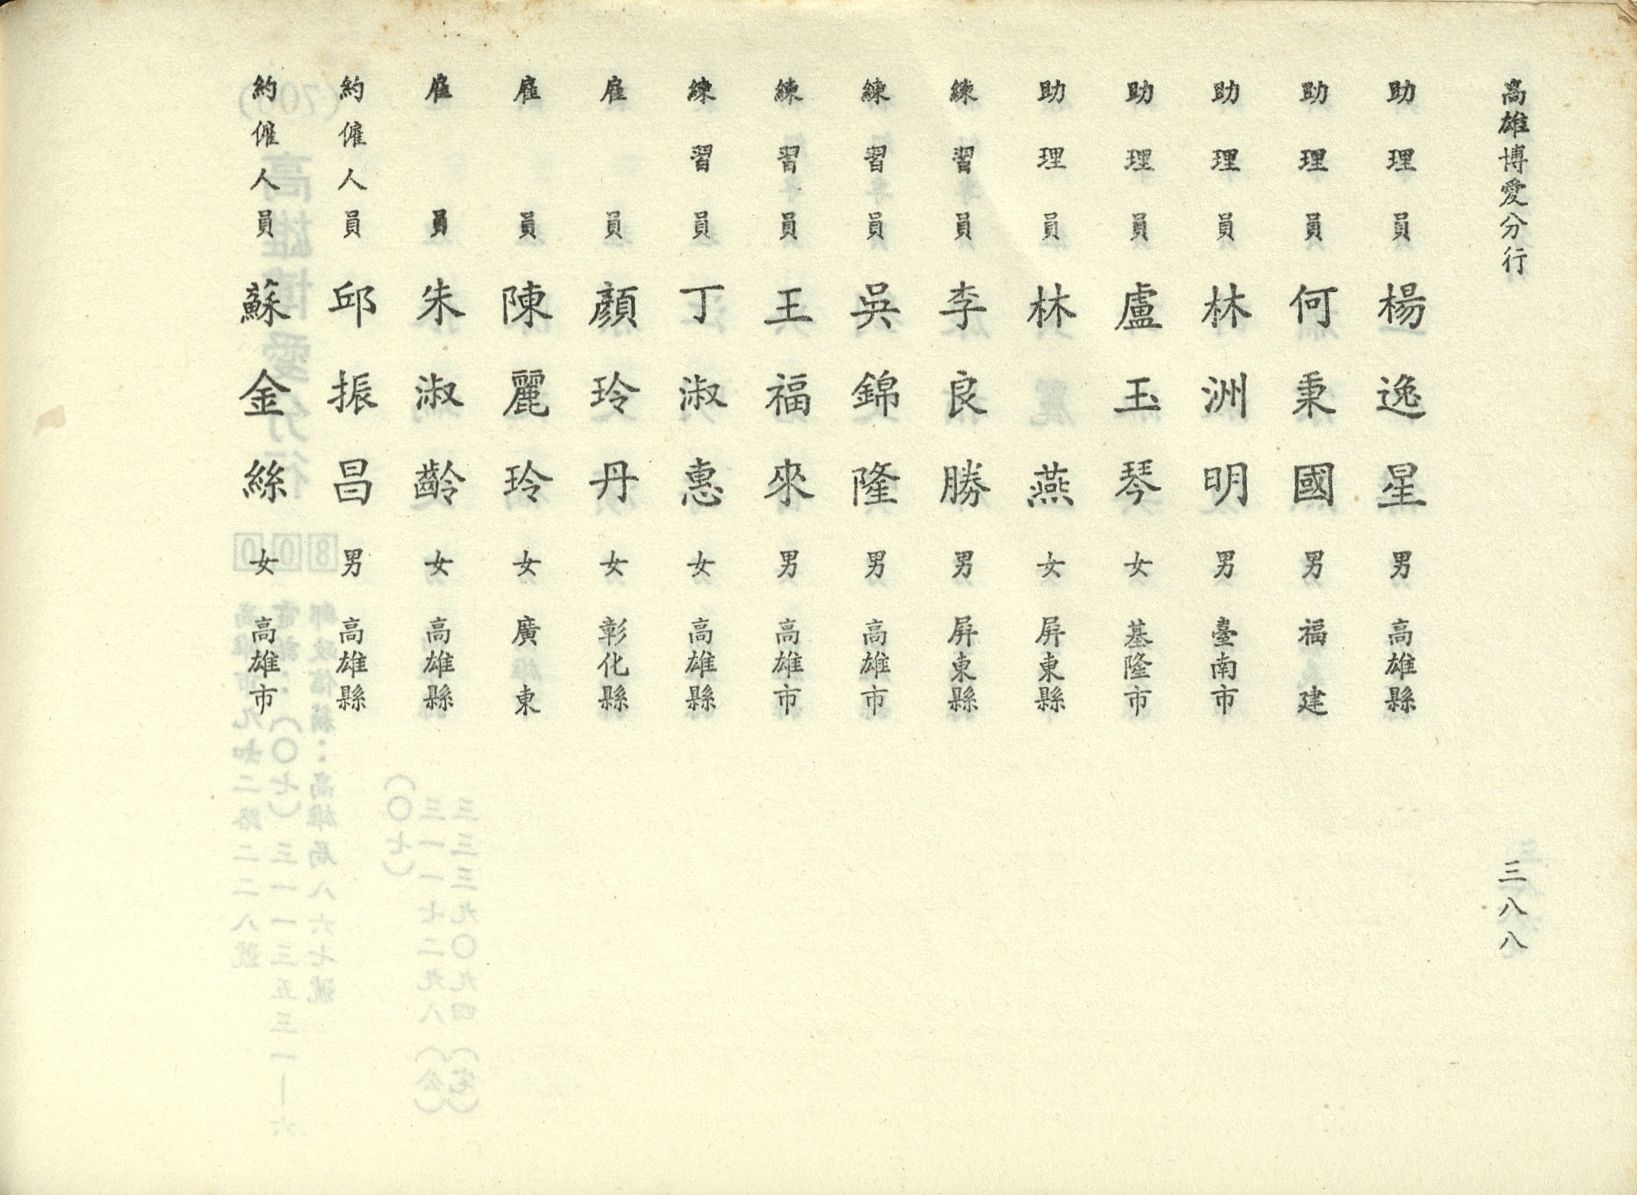 高雄博愛分行
三八八
助理員 楊逸星 男 高雄縣
助理員 何秉國 男 福建
助理員 林洲明 男 臺南市
助理員 盧玉琴 女 基隆市
助理員 林燕 女 屏東縣
練習員 李良勝 男 屏東縣
練習員 吳錦隆 男 高雄市
練習員 王福來 男 高雄市
練習員 丁淑惠 女 高雄縣
雇員 顏玲丹 女 彰化縣
雇員 陳麗玲 女 廣東
雇員 朱淑齡 女 高雄縣
約僱人員 邱振昌 男 高雄縣
約僱人員 蘇金絲 女 高雄市